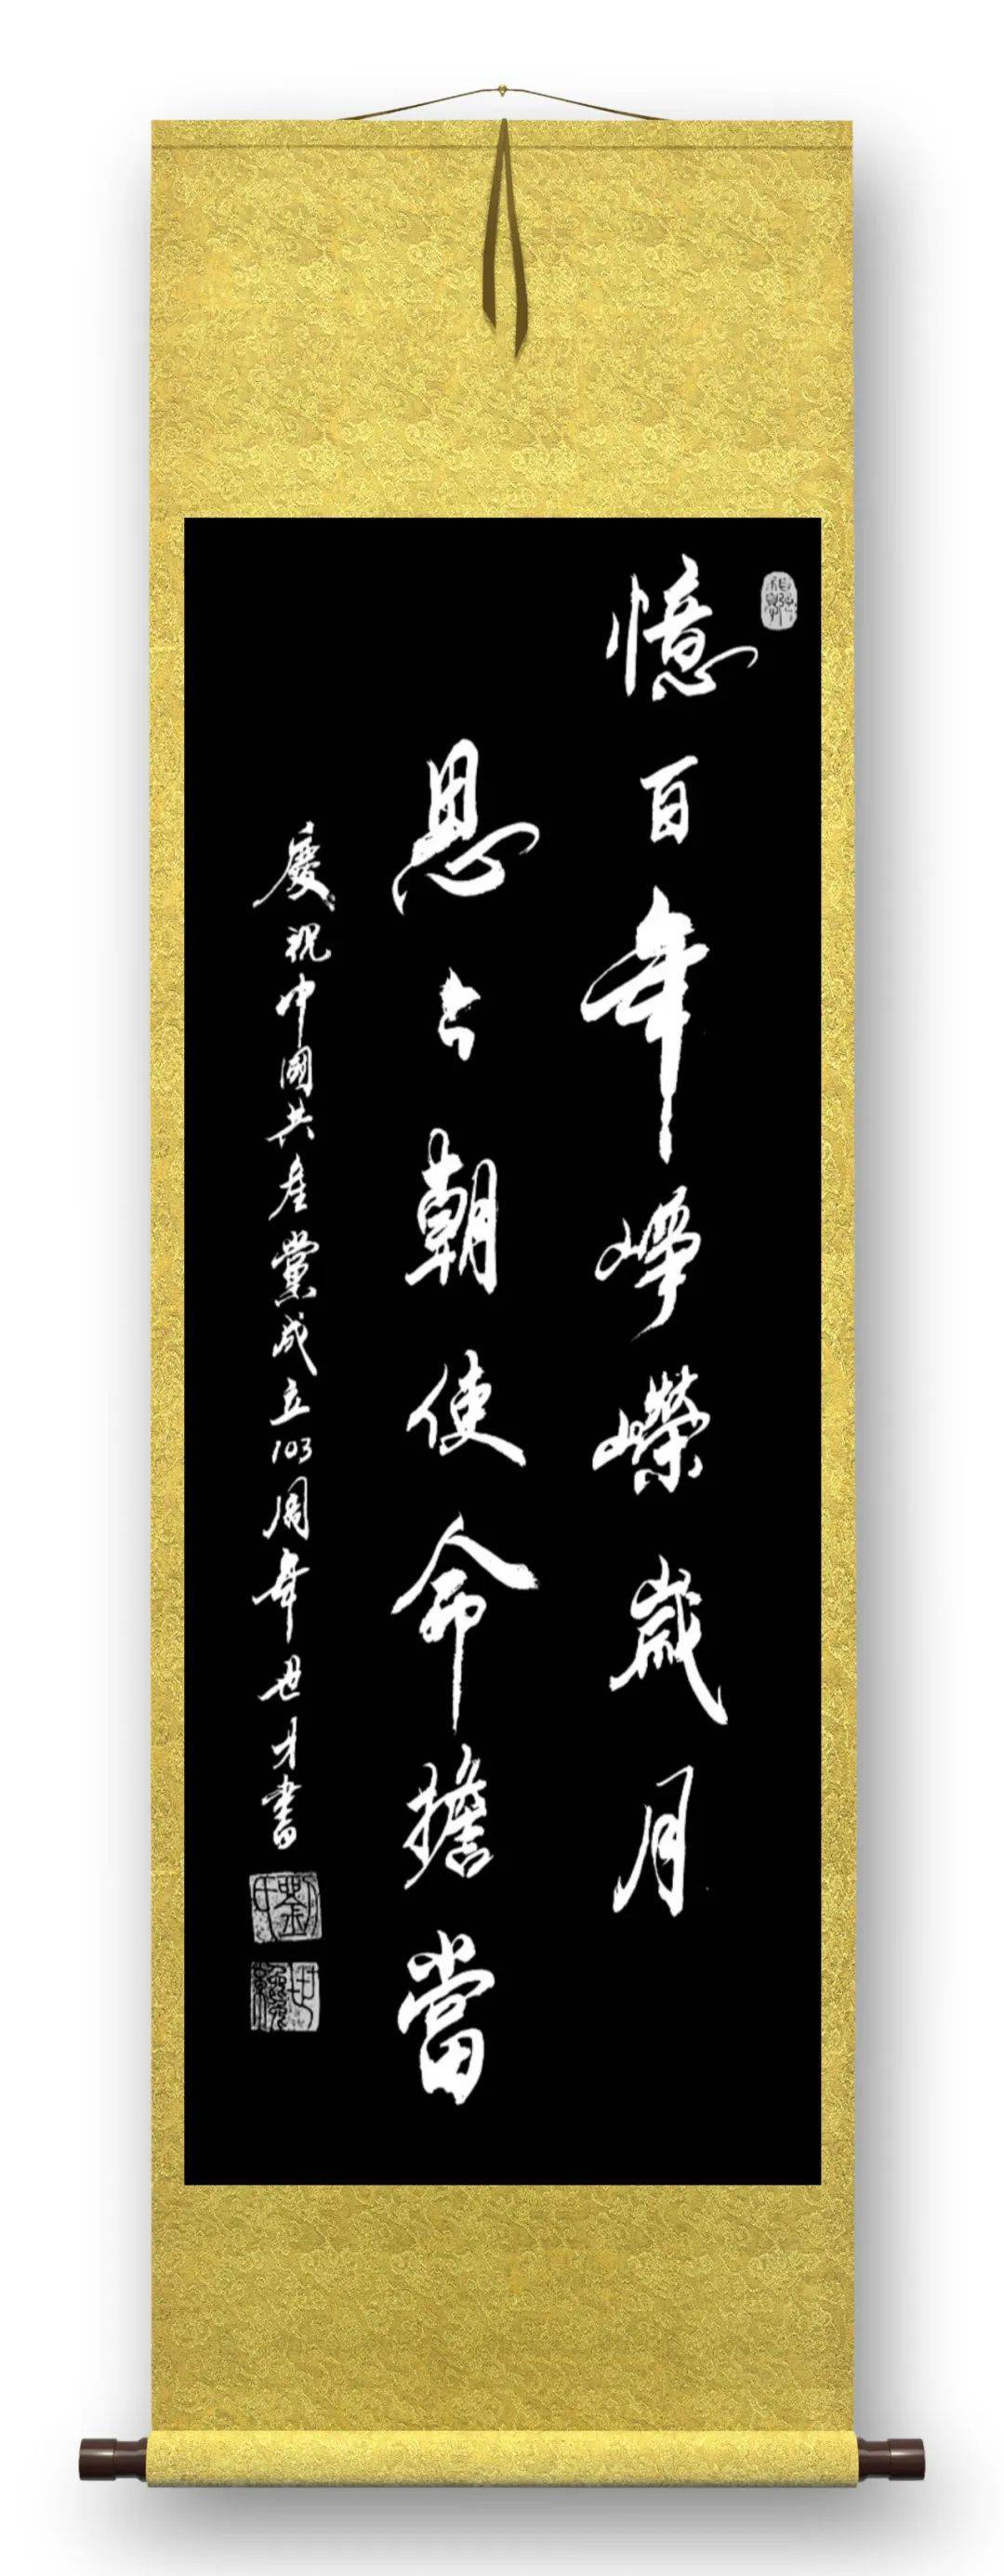 憶百年崢嶸歲月
思今朝使命擔當
慶祝中國共產黨成立103周年世才書